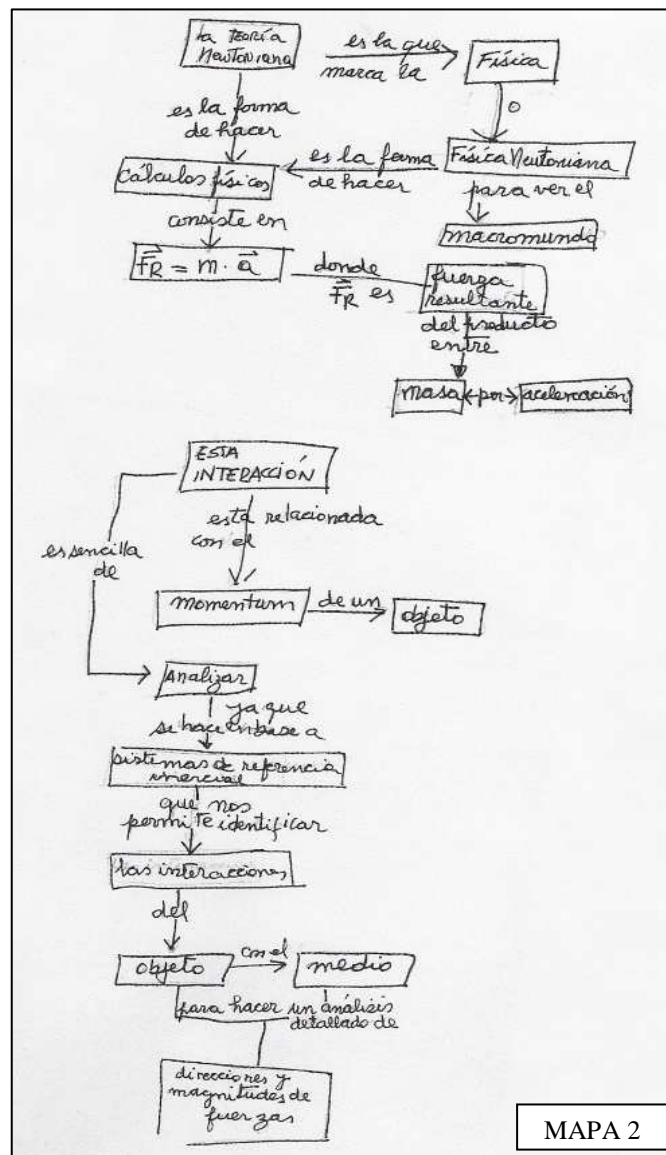 la teoría
Newtoniana
es la que
marca la
Física
es la forma
de hacer
o
Cálculos físicos
es la forma
de hacer
Física Newtoniana
para ver el
macromundo
consiste en
F⃗R = m · a⃗
donde
F⃗R es
fuerza
resultante
del producto
entre
masa
por
aceleración
ESTA
INTERACCIÓN
está relacionada
con el
es sencilla
de
momentum
de un
objeto
Analizar
ya que
se hace en base a
sistemas de referencia
inercial
que nos
permite identificar
las interacciones
del
objeto
con el
medio
para hacer un análisis
detallado de
direcciones y
magnitudes de
fuerzas
MAPA 2